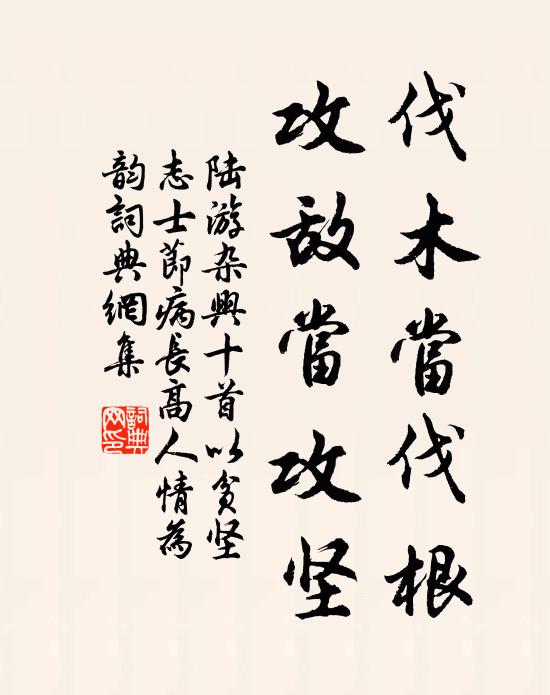 伐木當伐根
攻敌當攻坚
陆游杂興十首以貧坚
志士節病長高人情為
韵詞典網集
詞典
网印